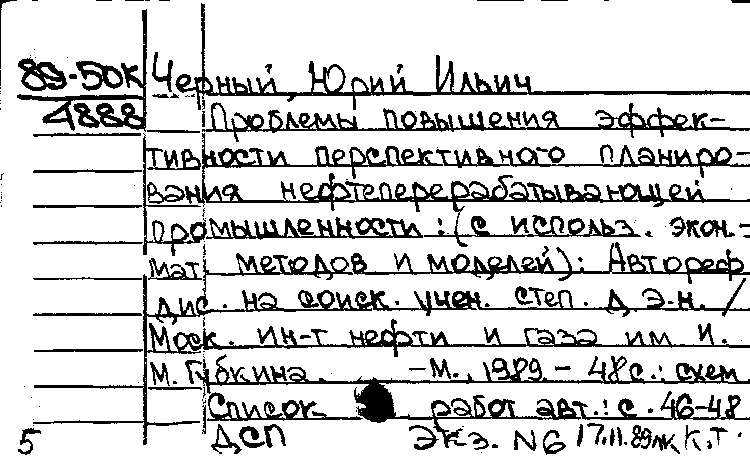 89-50К Черный, Юрий Ильич
4888 Проблемы повышения эффек-
тивности перспективного планиро-
вания нефтеперерабатывающей
промышленности: (с использ. экон.-
мат. методов и моделей): Автореф
дис. на соиск. учен. степ. д.э.н. /
Моск. ин-т нефти и газа им И.
М. Губкина. -М., 1989. - 48с.: схем
Список работ авт.: с. 46-48
5 ДСП Экз. N6 17.11.89 К.Т.